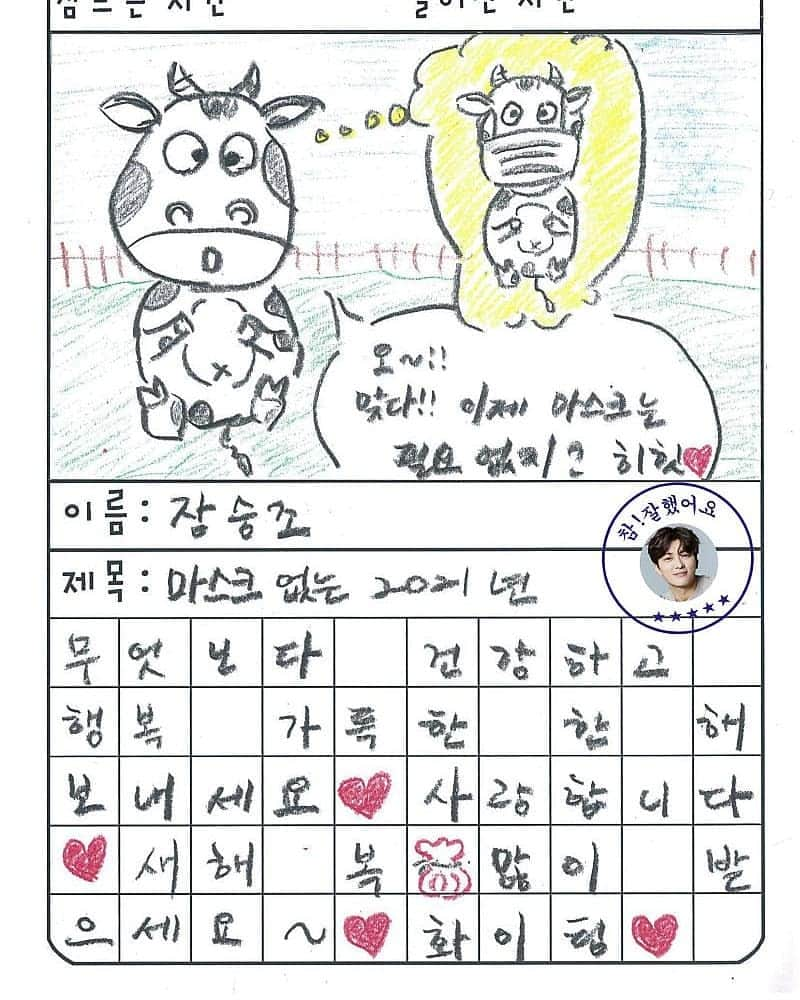 잠드는 시간 일어난 시간
오~!!
맞다!! 이제 마스크는
필요 없지? 히힛
이름: 장승조
참! 잘했어요
제목: 마스크 없는 2021년
무엇보다 건강하고
행복 가득한 한 해
보내세요 사랑합니다
새해 복 많이 받
으세요~ 화이팅